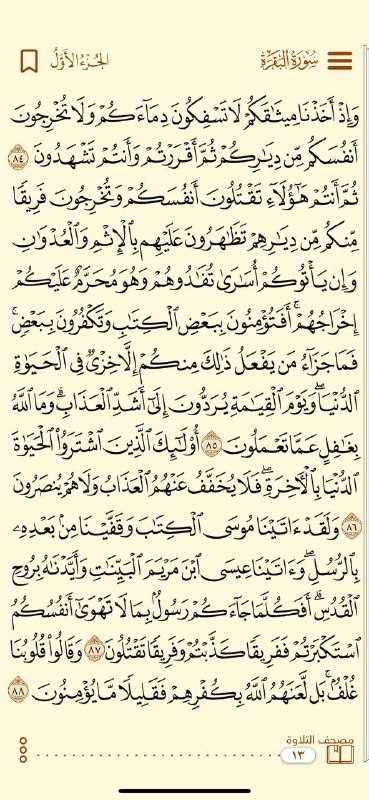 سُورَةُ البَقَرَة
الجُزْءُ الأَوَّلُ
وَإِذْ أَخَذْنَا مِيثَٰقَكُمْ لَا تَسْفِكُونَ دِمَآءَكُمْ وَلَا تُخْرِجُونَ
أَنفُسَكُم مِّن دِيَٰرِكُمْ ثُمَّ أَقْرَرْتُمْ وَأَنتُمْ تَشْهَدُونَ ٨٤
ثُمَّ أَنتُمْ هَٰٓؤُلَآءِ تَقْتُلُونَ أَنفُسَكُمْ وَتُخْرِجُونَ فَرِيقًا
مِّنكُم مِّن دِيَٰرِهِمْ تَظَٰهَرُونَ عَلَيْهِم بِٱلْإِثْمِ وَٱلْعُدْوَٰنِ
وَإِن يَأْتُوكُمْ أُسَٰرَىٰ تُفَٰدُوهُمْ وَهُوَ مُحَرَّمٌ عَلَيْكُمْ
إِخْرَاجُهُمْ ۚ أَفَتُؤْمِنُونَ بِبَعْضِ ٱلْكِتَٰبِ وَتَكْفُرُونَ بِبَعْضٍ ۚ
فَمَا جَزَآءُ مَن يَفْعَلُ ذَٰلِكَ مِنكُمْ إِلَّا خِزْىٌ فِى ٱلْحَيَوٰةِ
ٱلدُّنْيَا ۖ وَيَوْمَ ٱلْقِيَٰمَةِ يُرَدُّونَ إِلَىٰٓ أَشَدِّ ٱلْعَذَابِ ۗ وَمَا ٱللَّهُ
بِغَٰفِلٍ عَمَّا تَعْمَلُونَ ٨٥ أُو۟لَٰٓئِكَ ٱلَّذِينَ ٱشْتَرَوُا۟ ٱلْحَيَوٰةَ
ٱلدُّنْيَا بِٱلْءَاخِرَةِ ۖ فَلَا يُخَفَّفُ عَنْهُمُ ٱلْعَذَابُ وَلَا هُمْ يُنصَرُونَ
٨٦ وَلَقَدْ ءَاتَيْنَا مُوسَى ٱلْكِتَٰبَ وَقَفَّيْنَا مِنۢ بَعْدِهِۦ
بِٱلرُّسُلِ ۖ وَءَاتَيْنَا عِيسَى ٱبْنَ مَرْيَمَ ٱلْبَيِّنَٰتِ وَأَيَّدْنَٰهُ بِرُوحِ
ٱلْقُدُسِ ۗ أَفَكُلَّمَا جَآءَكُمْ رَسُولٌۢ بِمَا لَا تَهْوَىٰٓ أَنفُسُكُمُ
ٱسْتَكْبَرْتُمْ فَفَرِيقًا كَذَّبْتُمْ وَفَرِيقًا تَقْتُلُونَ ٨٧ وَقَالُوا۟ قُلُوبُنَا
غُلْفٌۢ ۚ بَل لَّعَنَهُمُ ٱللَّهُ بِكُفْرِهِمْ فَقَلِيلًا مَّا يُؤْمِنُونَ ٨٨
مصحف التلاوة
١٣